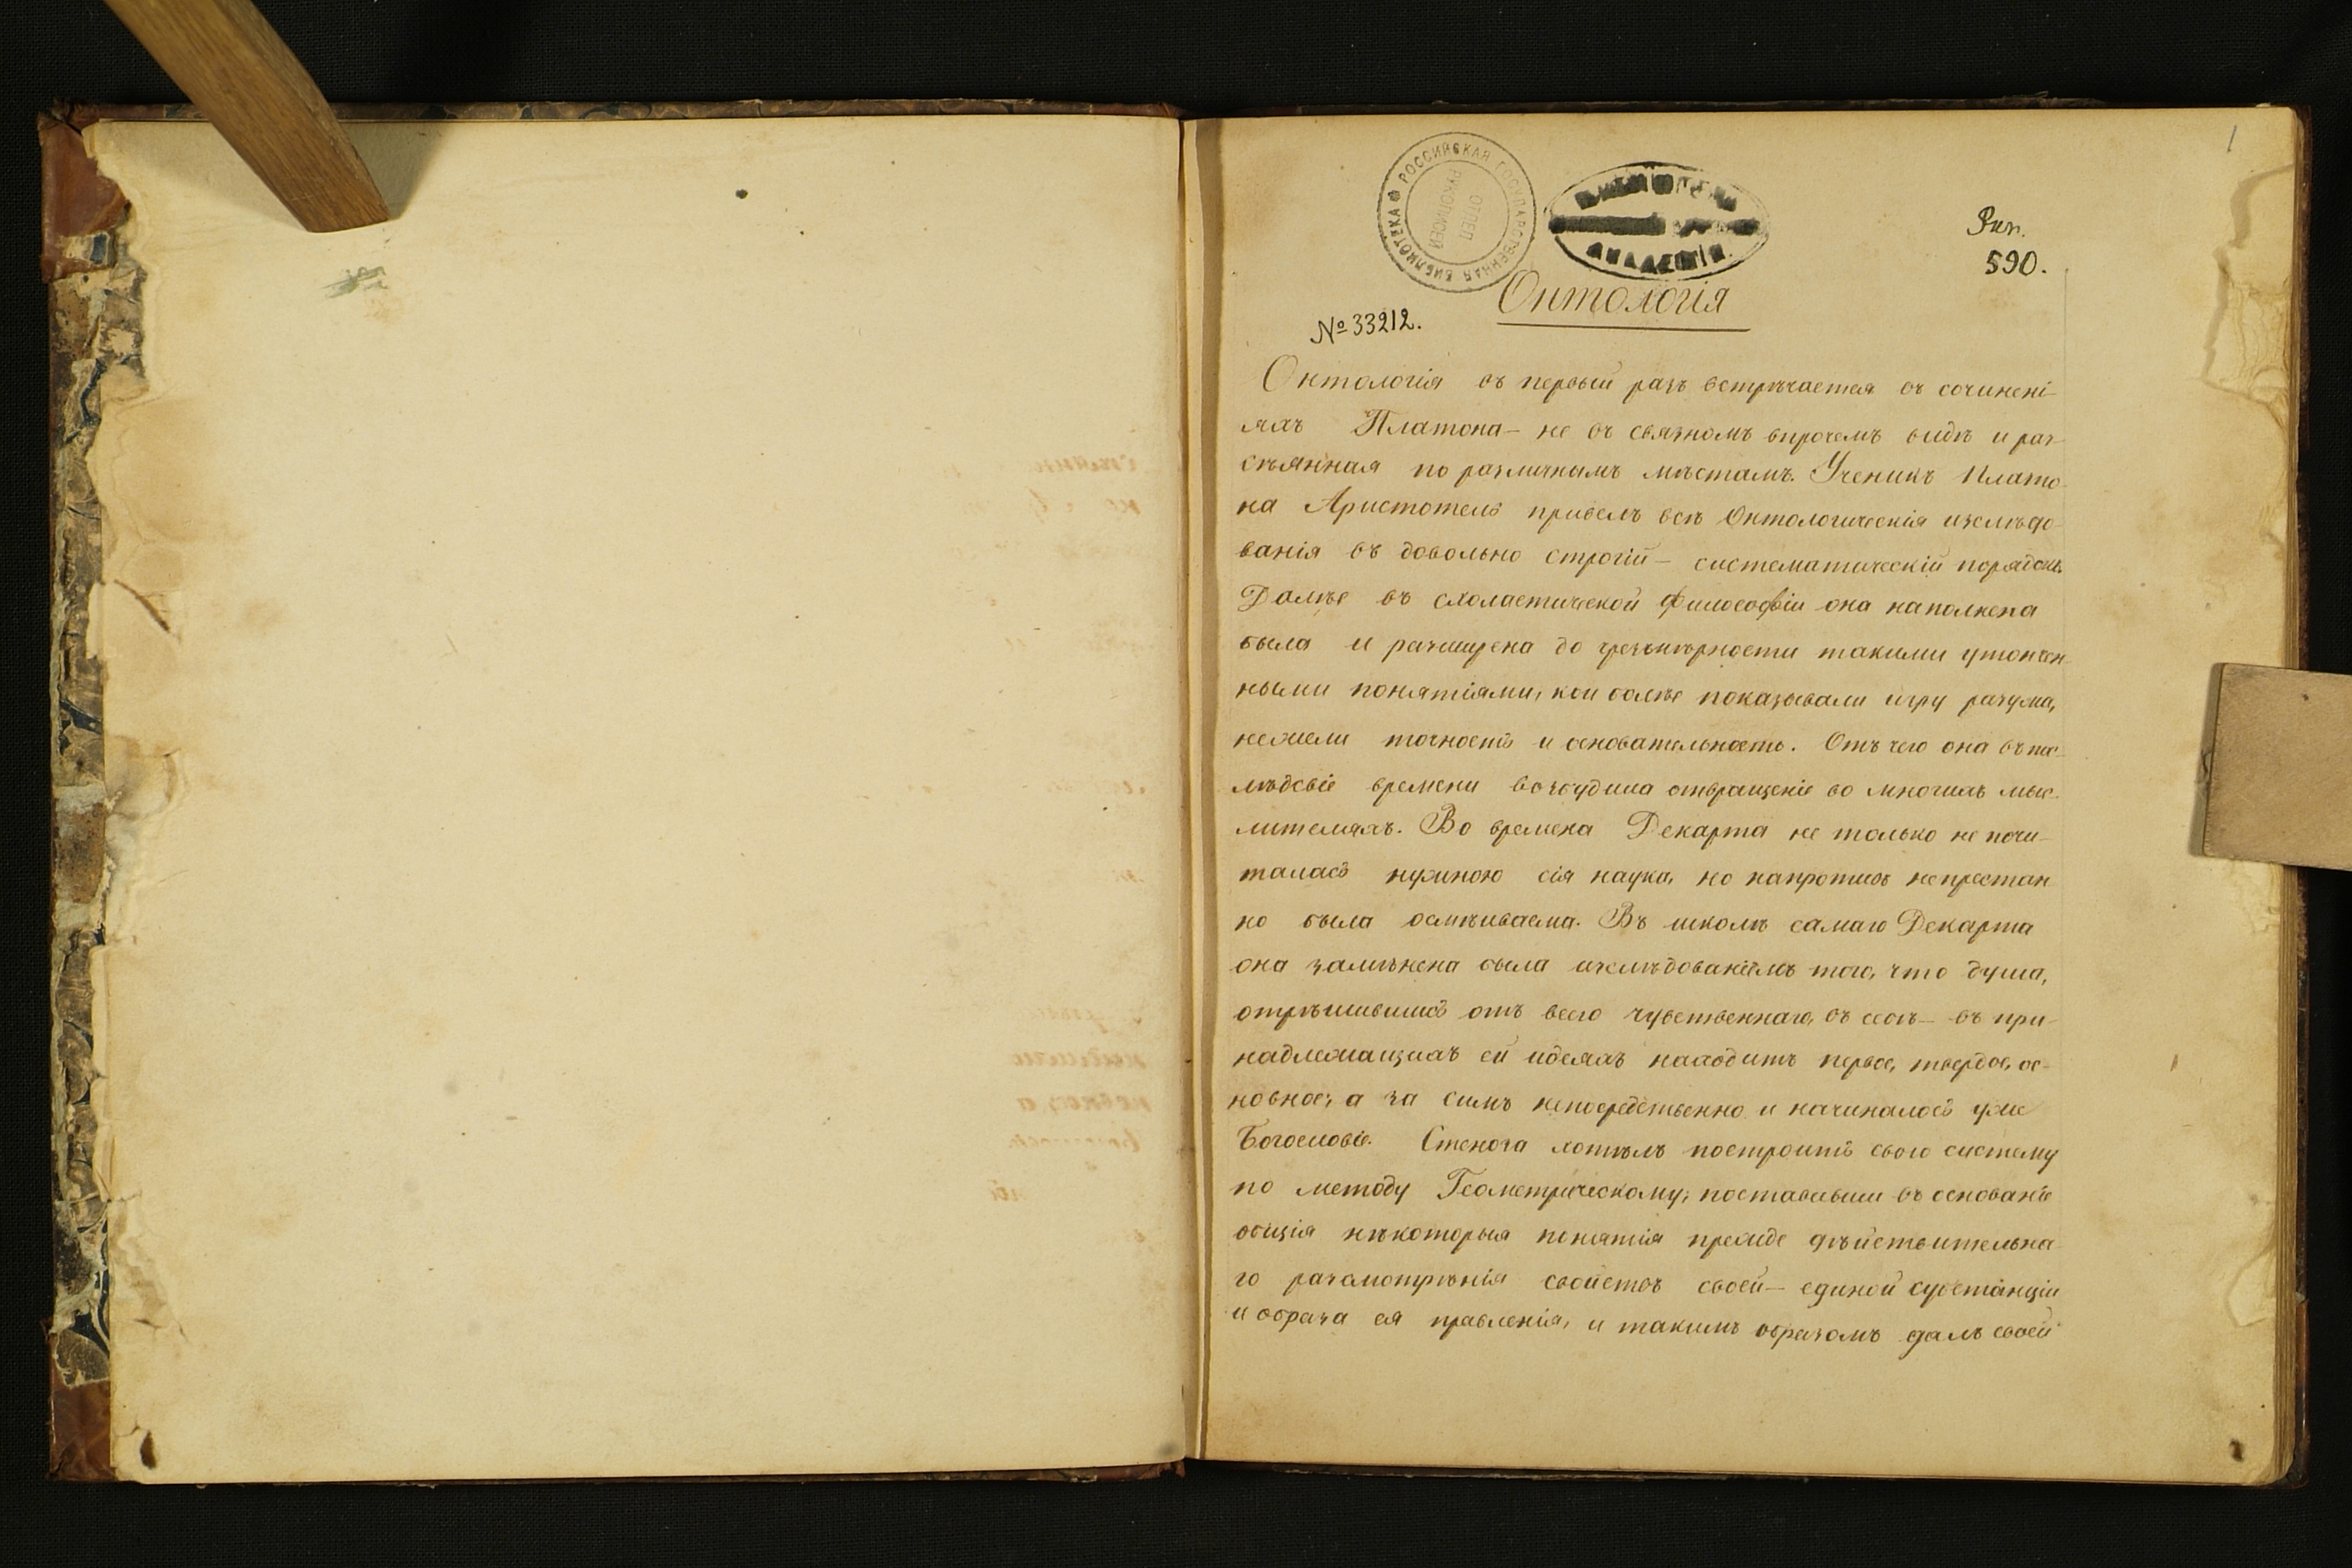 1
РОССИЙСКАЯ ГОСУДАРСТВЕННАЯ БИБЛИОТЕКА
ОТДЕЛ
РУКОПИСЕЙ
590.
Онтологія
№ 33212.
Онтологія въ первый разъ встрѣчается въ сочинені-
яхъ Платона – не въ связномъ впрочемъ видѣ и раз-
сѣянная по различнымъ мѣстамъ. Ученикъ Плато-
на Аристотель привелъ всѣ Онтологическія изслѣдо-
ванія въ довольно строгій – систематическій порядокъ.
Далѣе въ схоластической философіи она наполнена
была и разширена до чрезмѣрности такими утончен-
ными понятіями, кои болѣе показывали игру разума,
нежели точность и основательность. Отъ чего она въ пос-
лѣдсвіе времени возбудила отвращеніе во многихъ мыс-
лителяхъ. Во времена Декарта не только не почи-
талась нужною сія наука, но напротивъ непрестан
но была осмѣиваема. Въ школѣ самаго Декарта
она замѣнена была изслѣдованіемъ того, что душа,
отрѣшившись отъ всего чувственнаго, въ себѣ – въ при-
надлежащихъ ей идеяхъ находитъ первое, твердое, ос-
новное; а за симъ непосредственно и начиналось уже
Богословіе. хотѣлъ построить свою систему
по методу Геометрическому; поставивши въ основаніе
общія нѣкоторыя понятія прежде дѣйствительна-
го разсмотрѣнія свойствъ своей – единой субстанціи
и образа ея , и такимъ образомъ далъ своей